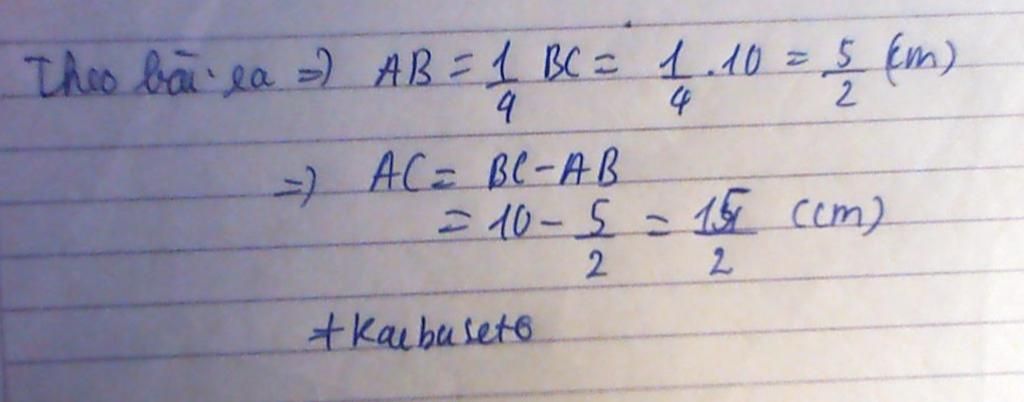 Theo bài ra => AB = 1/4 BC = 1/4 . 10 = 5/2 (cm)
=> AC = BC - AB
= 10 - 5/2 = 15/2 (cm)
+ Kaebuseto